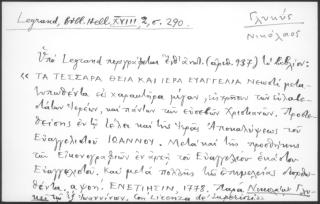 Legrand, Bibl. Hell. XVIII 2, σ. 290.
Γλυκύς
Νικόλαος
Ὑπὸ Legrand περιγράφεται (ἀριθ. 937) τὸ βιβλίον:
« ΤΑ ΤΕΣΣΑΡΑ ΘΕΙΑ ΚΑΙ ΙΕΡΑ ΕΥΑΓΓΕΛΙΑ Νεωστὶ μετα-
τυπωθέντα εἰς χαρακτῆρα μέγαν, εἰς χρῆσιν τῶν εὐλαβε-
στάτων Ἱερέων, καὶ πάντων τῶν εὐσεβῶν Χριστιανῶν. Προστε-
θείσης ἐν τῷ τέλει καὶ τῆς Ἱερᾶς Ἀποκαλύψεως τοῦ
Εὐαγγελιστοῦ ΙΩΑΝΝΟΥ. Μετὰ καὶ τῆς προσθήκης
τῶν Εἰκονογραφιῶν ἐν ἀρχῇ τοῦ Εὐαγγελίου ἑκάστου
Εὐαγγελιστοῦ. Καὶ μετὰ πολλῆς τῆς ἐπιμελείας διορθω-
θέντα. αψοή. ΕΝΕΤΙΗΣΙΝ, 1778. Παρὰ Νικολάῳ Γλυ-
κεῖ τῷ ἐξ Ἰωαννίνων. Con Licenza de' Superiori »